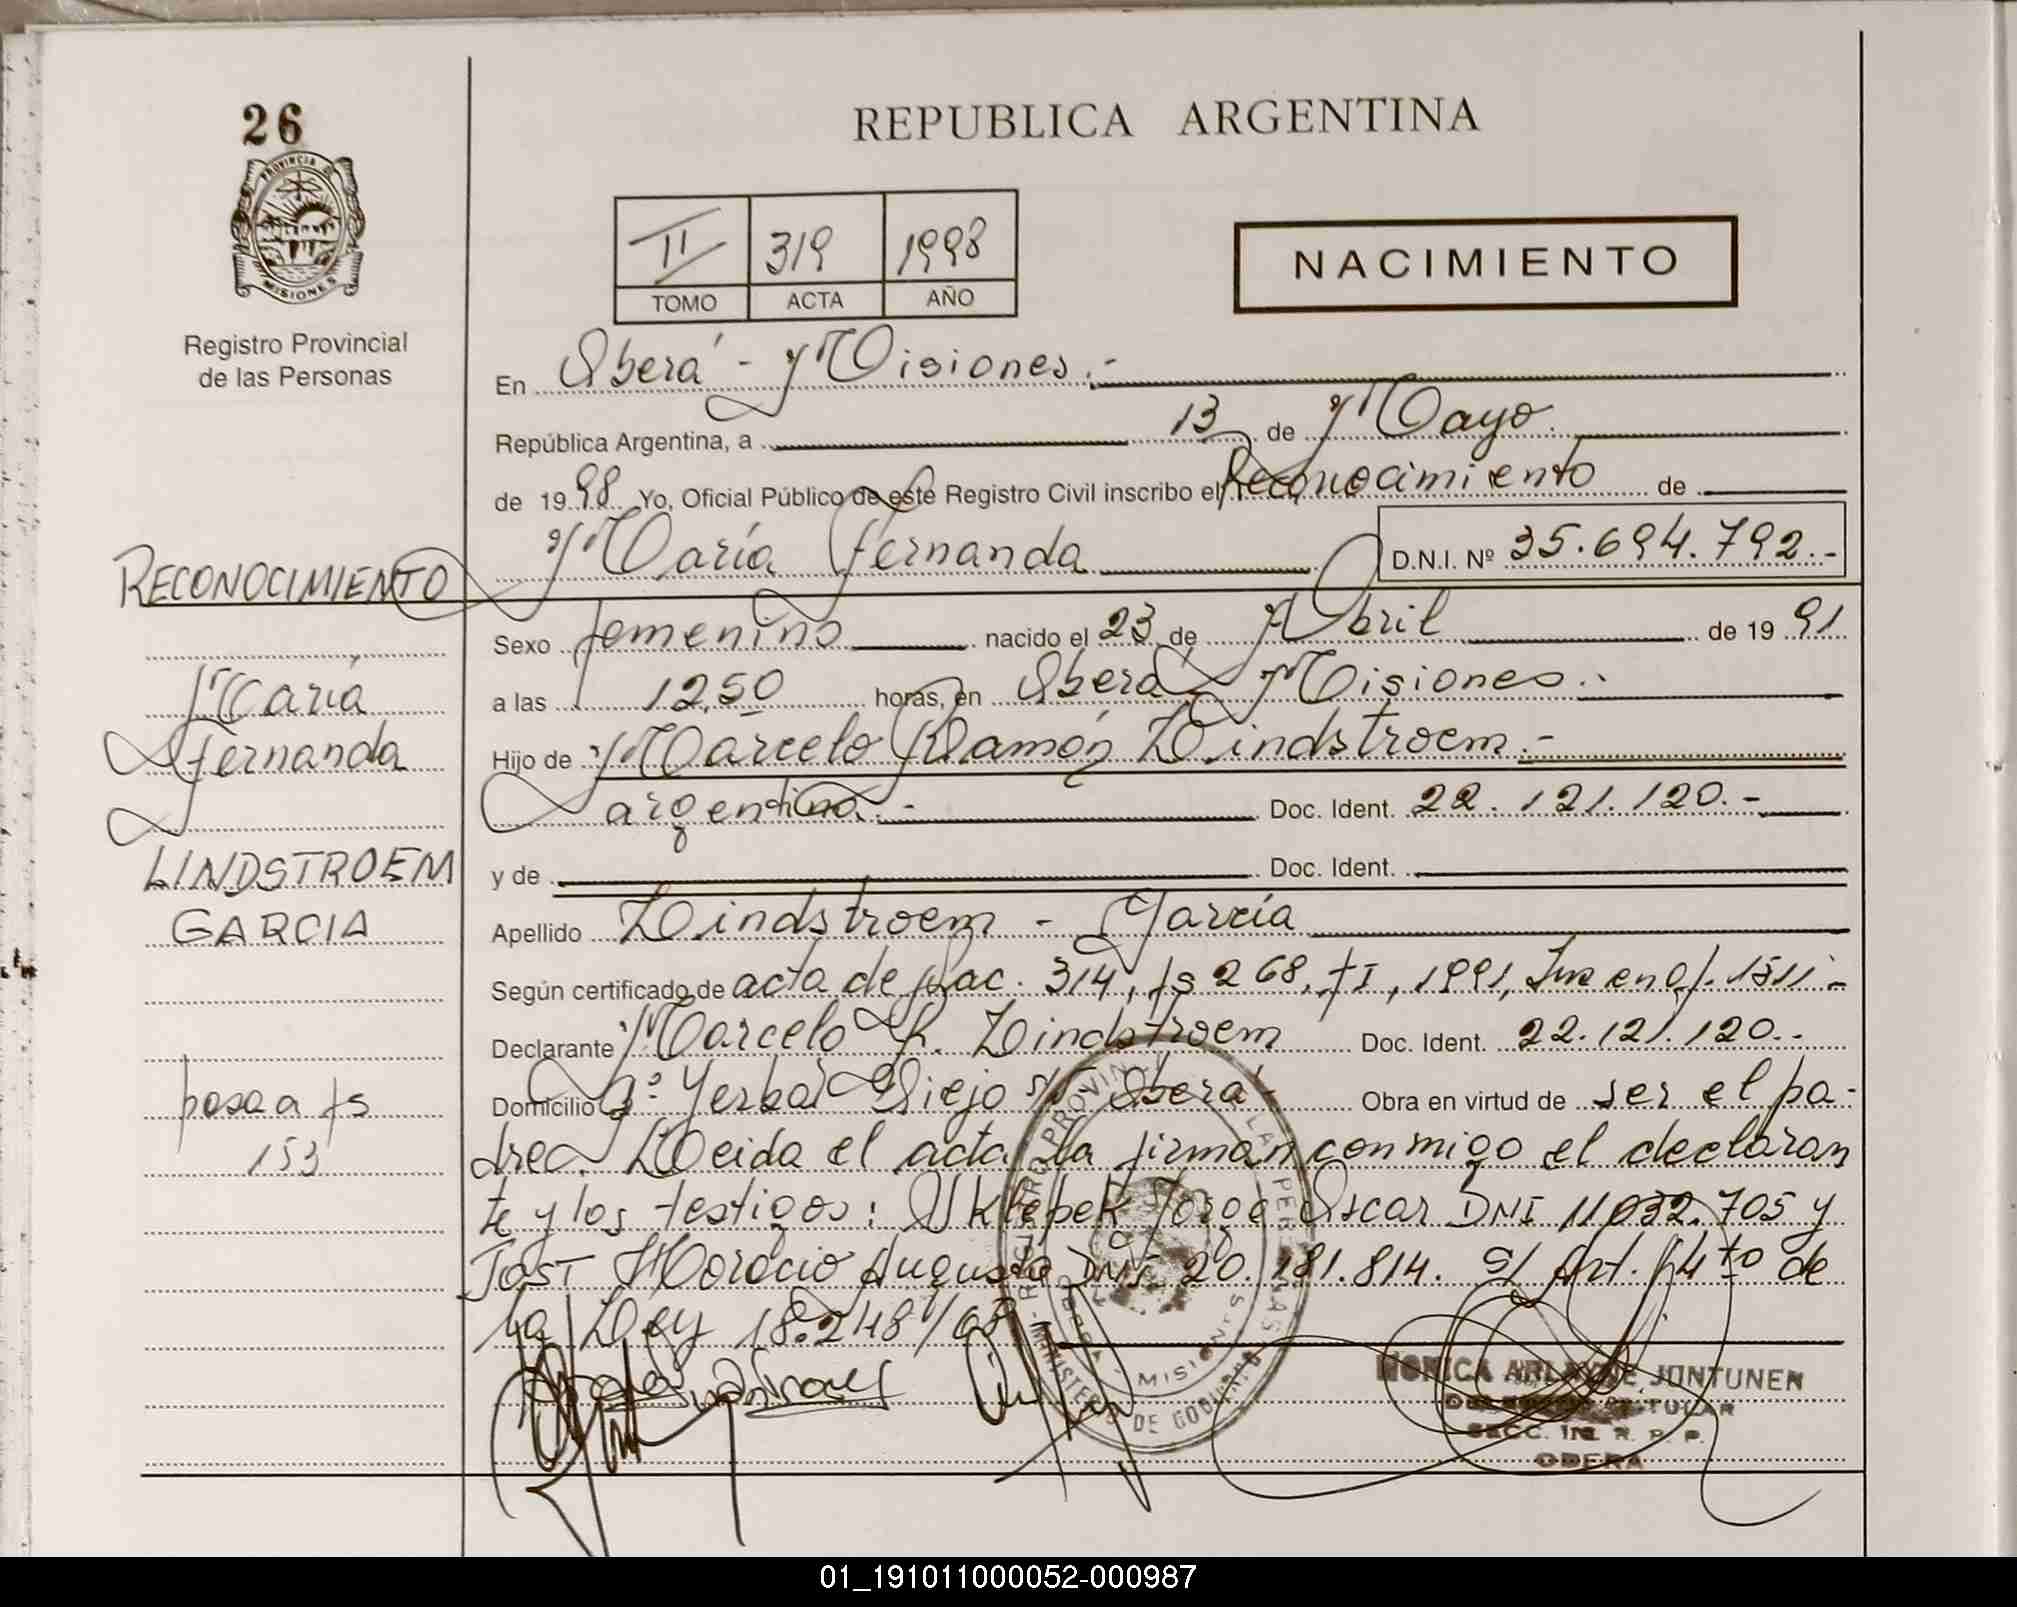 26
PROVINCIA DE
MISIONES
Registro Provincial
de las Personas
REPUBLICA ARGENTINA
II 319 1998
TOMO ACTA AÑO
NACIMIENTO
En Oberá - Misiones.-
República Argentina, a 13 de Mayo.
de 1998 Yo, Oficial Público de este Registro Civil inscribo el Reconocimiento de
María Fernanda D.N.I. Nº 35.694.792.-
RECONOCIMIENTO
Sexo femenino nacido el 23 de Abril de 19 91
a las 12,50 horas, en Oberá Misiones.-
Hijo de Marcelo Ramón Lindstroem.-
argentino.- Doc. Ident. 22.121.120.-
y de Doc. Ident.
Apellido Lindstroem - García
Según certificado de acta de Nac. 314, fs 268, tI, 1991, 1511-
Declarante Marcelo R. Lindstroem Doc. Ident. 22.121.120.-
Domicilio Bº Yerbal Viejo s/n Oberá Obra en virtud de ser el pa-
dre. Leida el acta la firman conmigo el declaran
te y los testigos: Jorge Oscar DNI 11032.705 y
JOST Horacio Augusto DNI 20.181.814. S/ Art. de
la Ley 18.248/
María
Fernanda
LINDSTROEM
GARCIA
pasa a fs
153
REGISTRO PROVINCIAL DE LAS PERSONAS
MINISTERIO DE GOBIERNO
MISIONES
MONICA ARLAYNE JUNTUNEN
TITULAR
SECC. 1ra. R. P. P.
OBERA
01_191011000052-000987